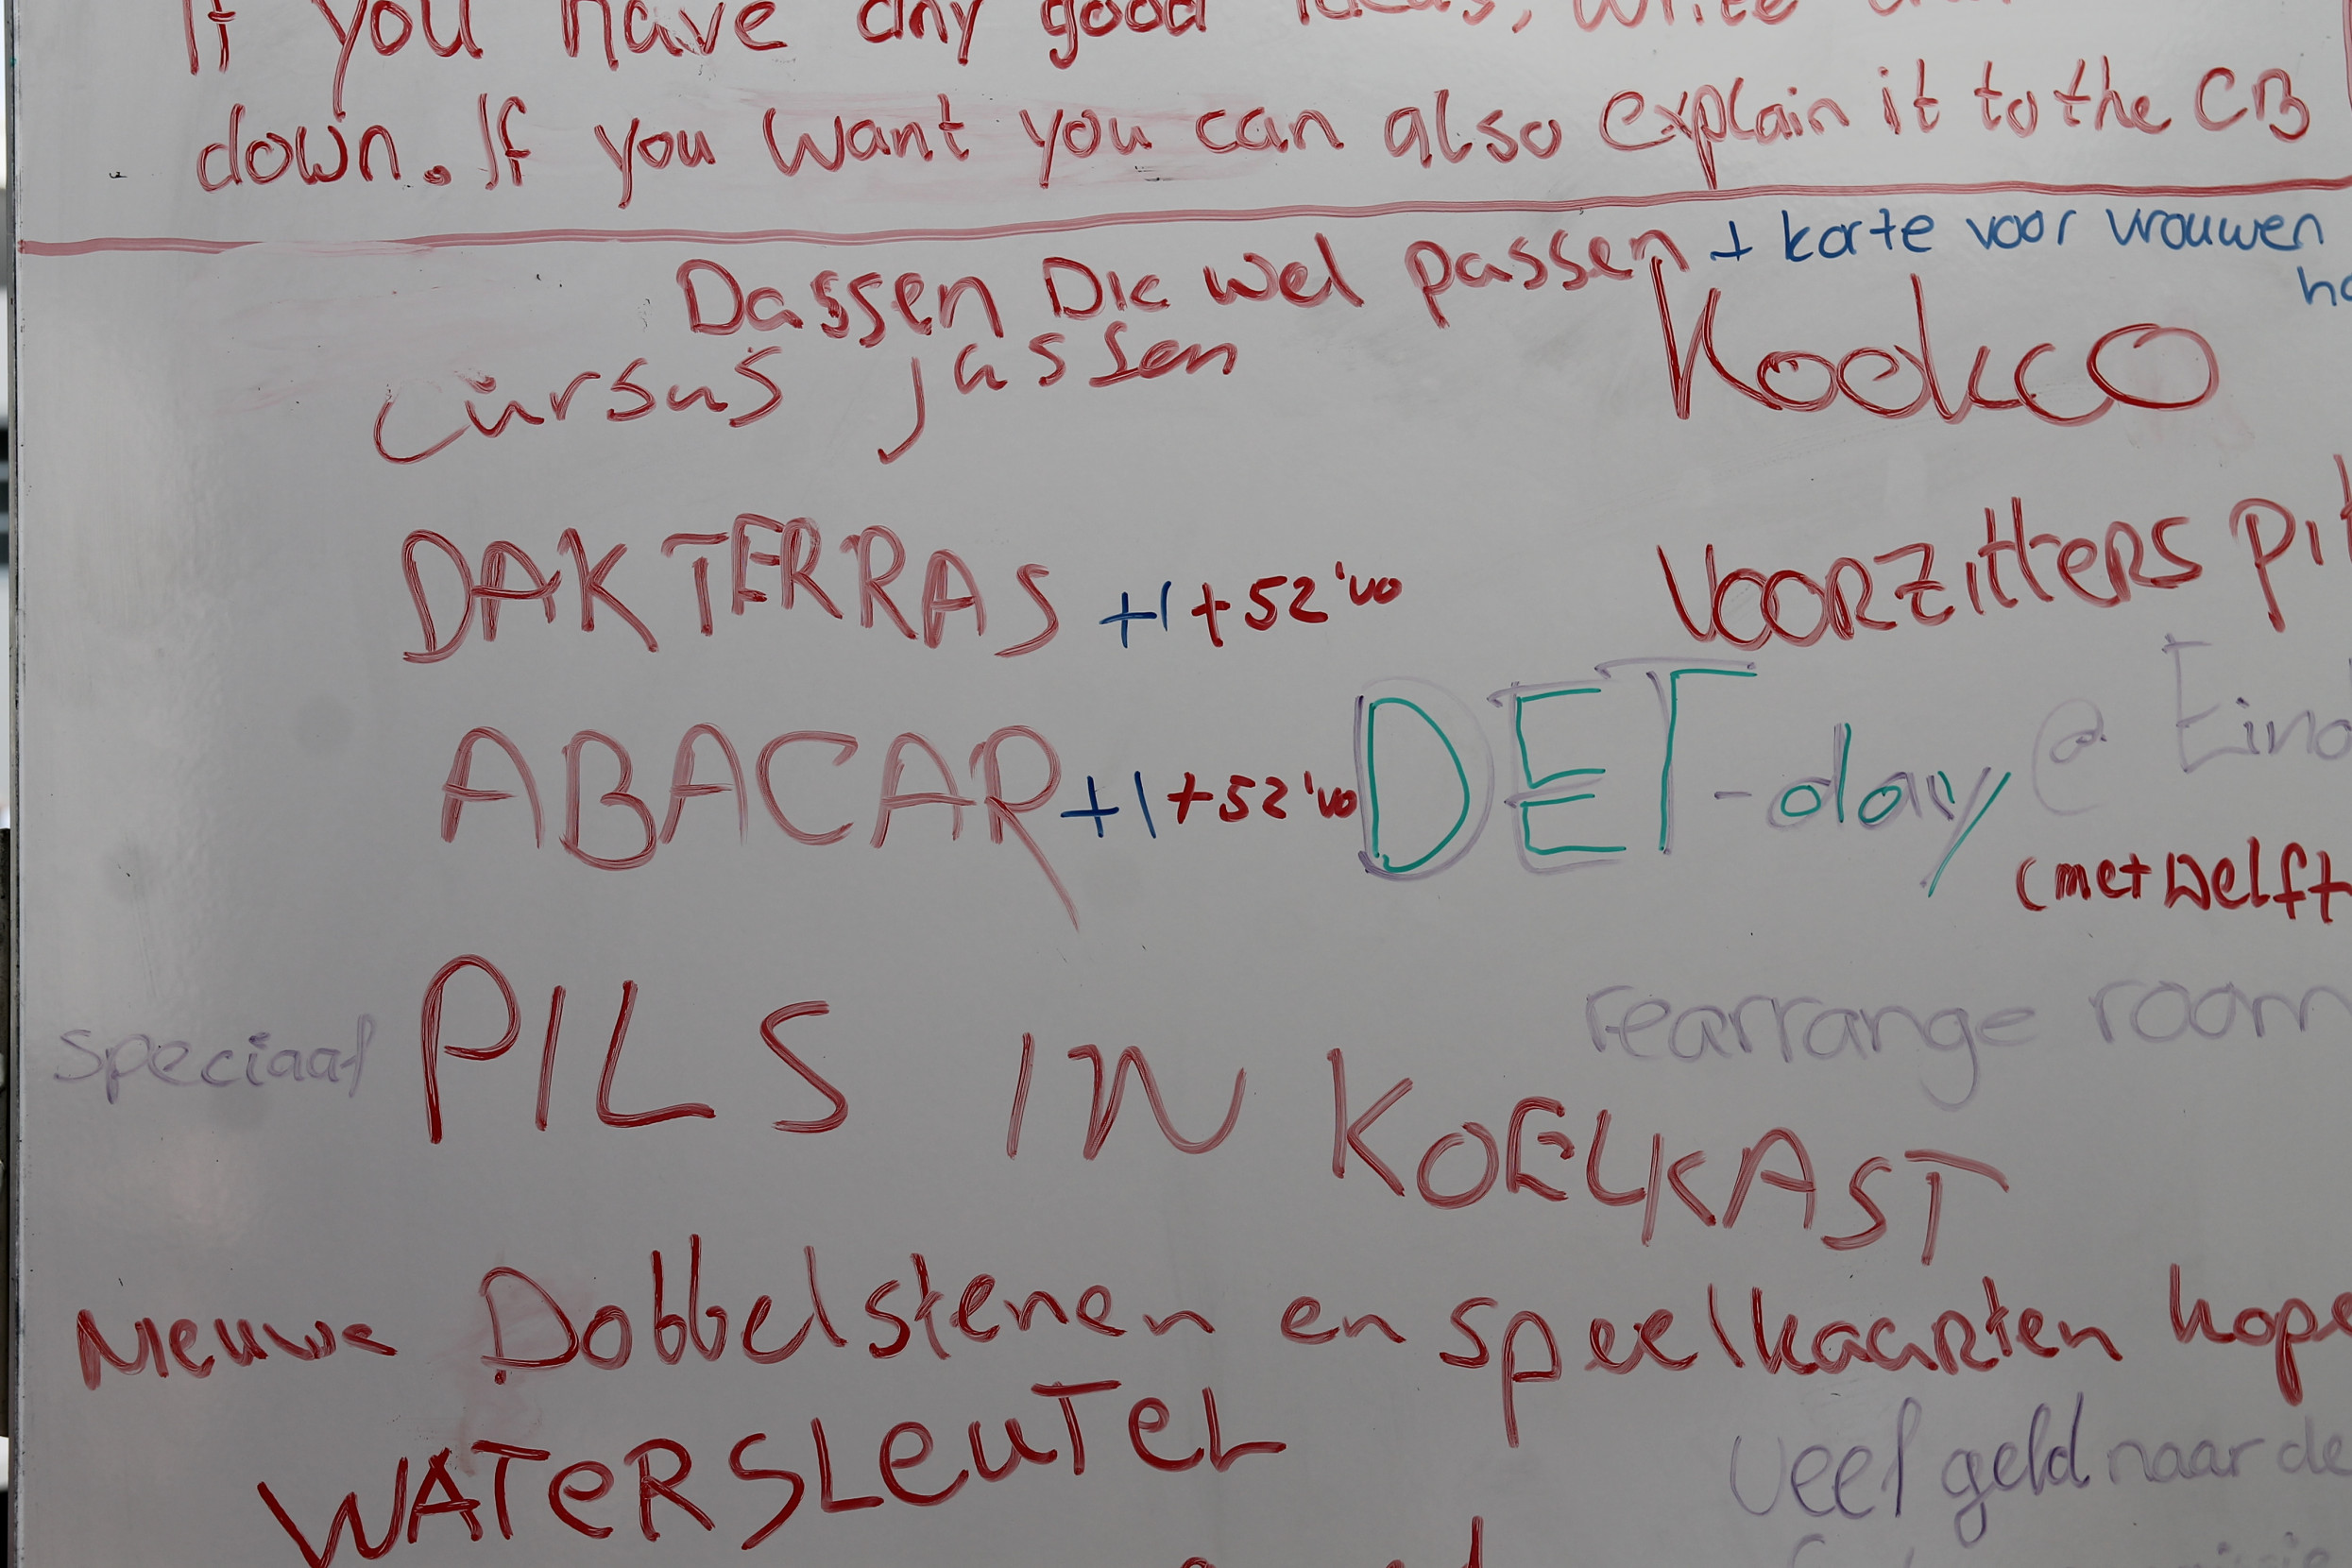 If you have any good ideas, write
down. If you want you can also explain it to the CB
Dassen Die wel passen + korte voor vrouwen
cursus jassen
KookCO
DAKTERRAS +1 +52 'vo
VOORZITTERS
ABACAR +1 +52 'vo
DET-day @
(met Delft
speciaal PILS IN KOELKAST
rearrange room
Nieuwe Dobbelstenen en speelkaarten kope
WATERSLEUTEL
veel geld naar de